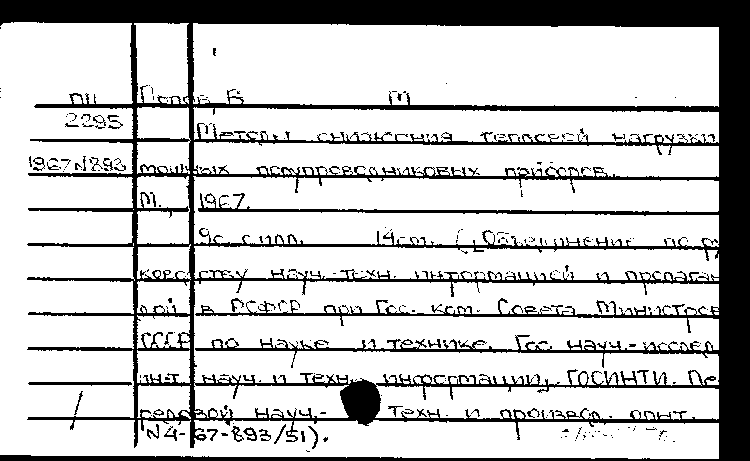 ПИ Попов, В М
2295 Методы снижения тепловой нагрузки
1967 N893 мощных полупроводниковых приборов.
М., 1967.
9с. с илл. 14 см. (Объединение по ру
ководству науч.-техн. информацией и пропаган
дой в РСФСР при Гос. ком. Совета Министров
СССР по науке и технике. Гос науч.-исслед.
ин-т науч. и техн. информации, ГОСИНТИ. Пе
редовой науч.- техн. и производ. опыт.
N4-67-893/51).